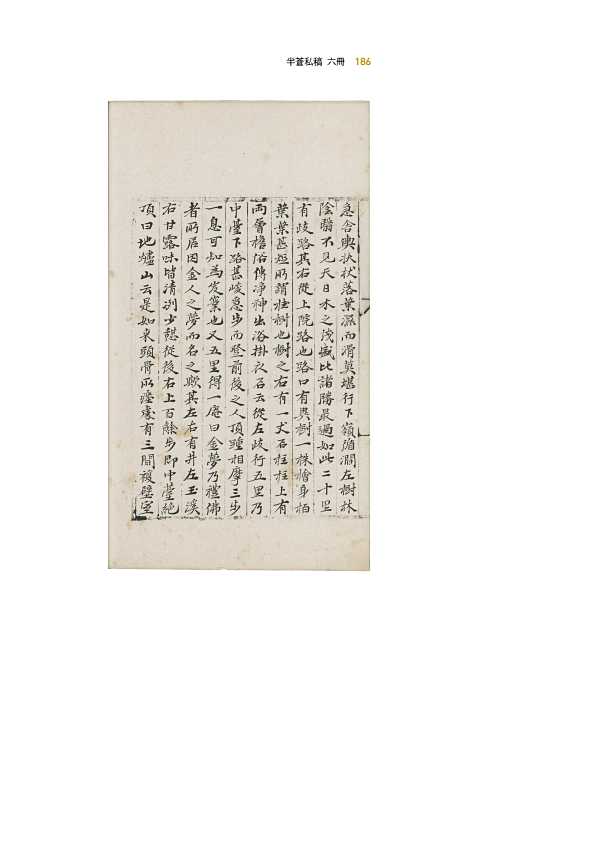 半蒼私稿 六冊 186
息舍輿扶杖落葉深而滑莫堪行下嶺循澗左樹林
陰翳不見天日木之茂盛比諸勝最過如此二十里
有歧路其右從上院路也路口有異樹一株檜身栢
葉葉甚短所謂桂樹也樹之右有一丈石柱柱上有
兩曾檐俗傳淨神出浴掛衣石云從左歧行五里乃
中臺下路甚峻急步而登前後之人頂踵相摩三步
一息可知為友藥也又五里得一庵曰金夢乃禮佛
者所居因金人之夢而名之歟其左右有井左玉溪
右甘露味皆清冽少憇從後右上百餘步即中臺絶
頂曰地爐山云是如來頭骨所瘞處有三間複壁室